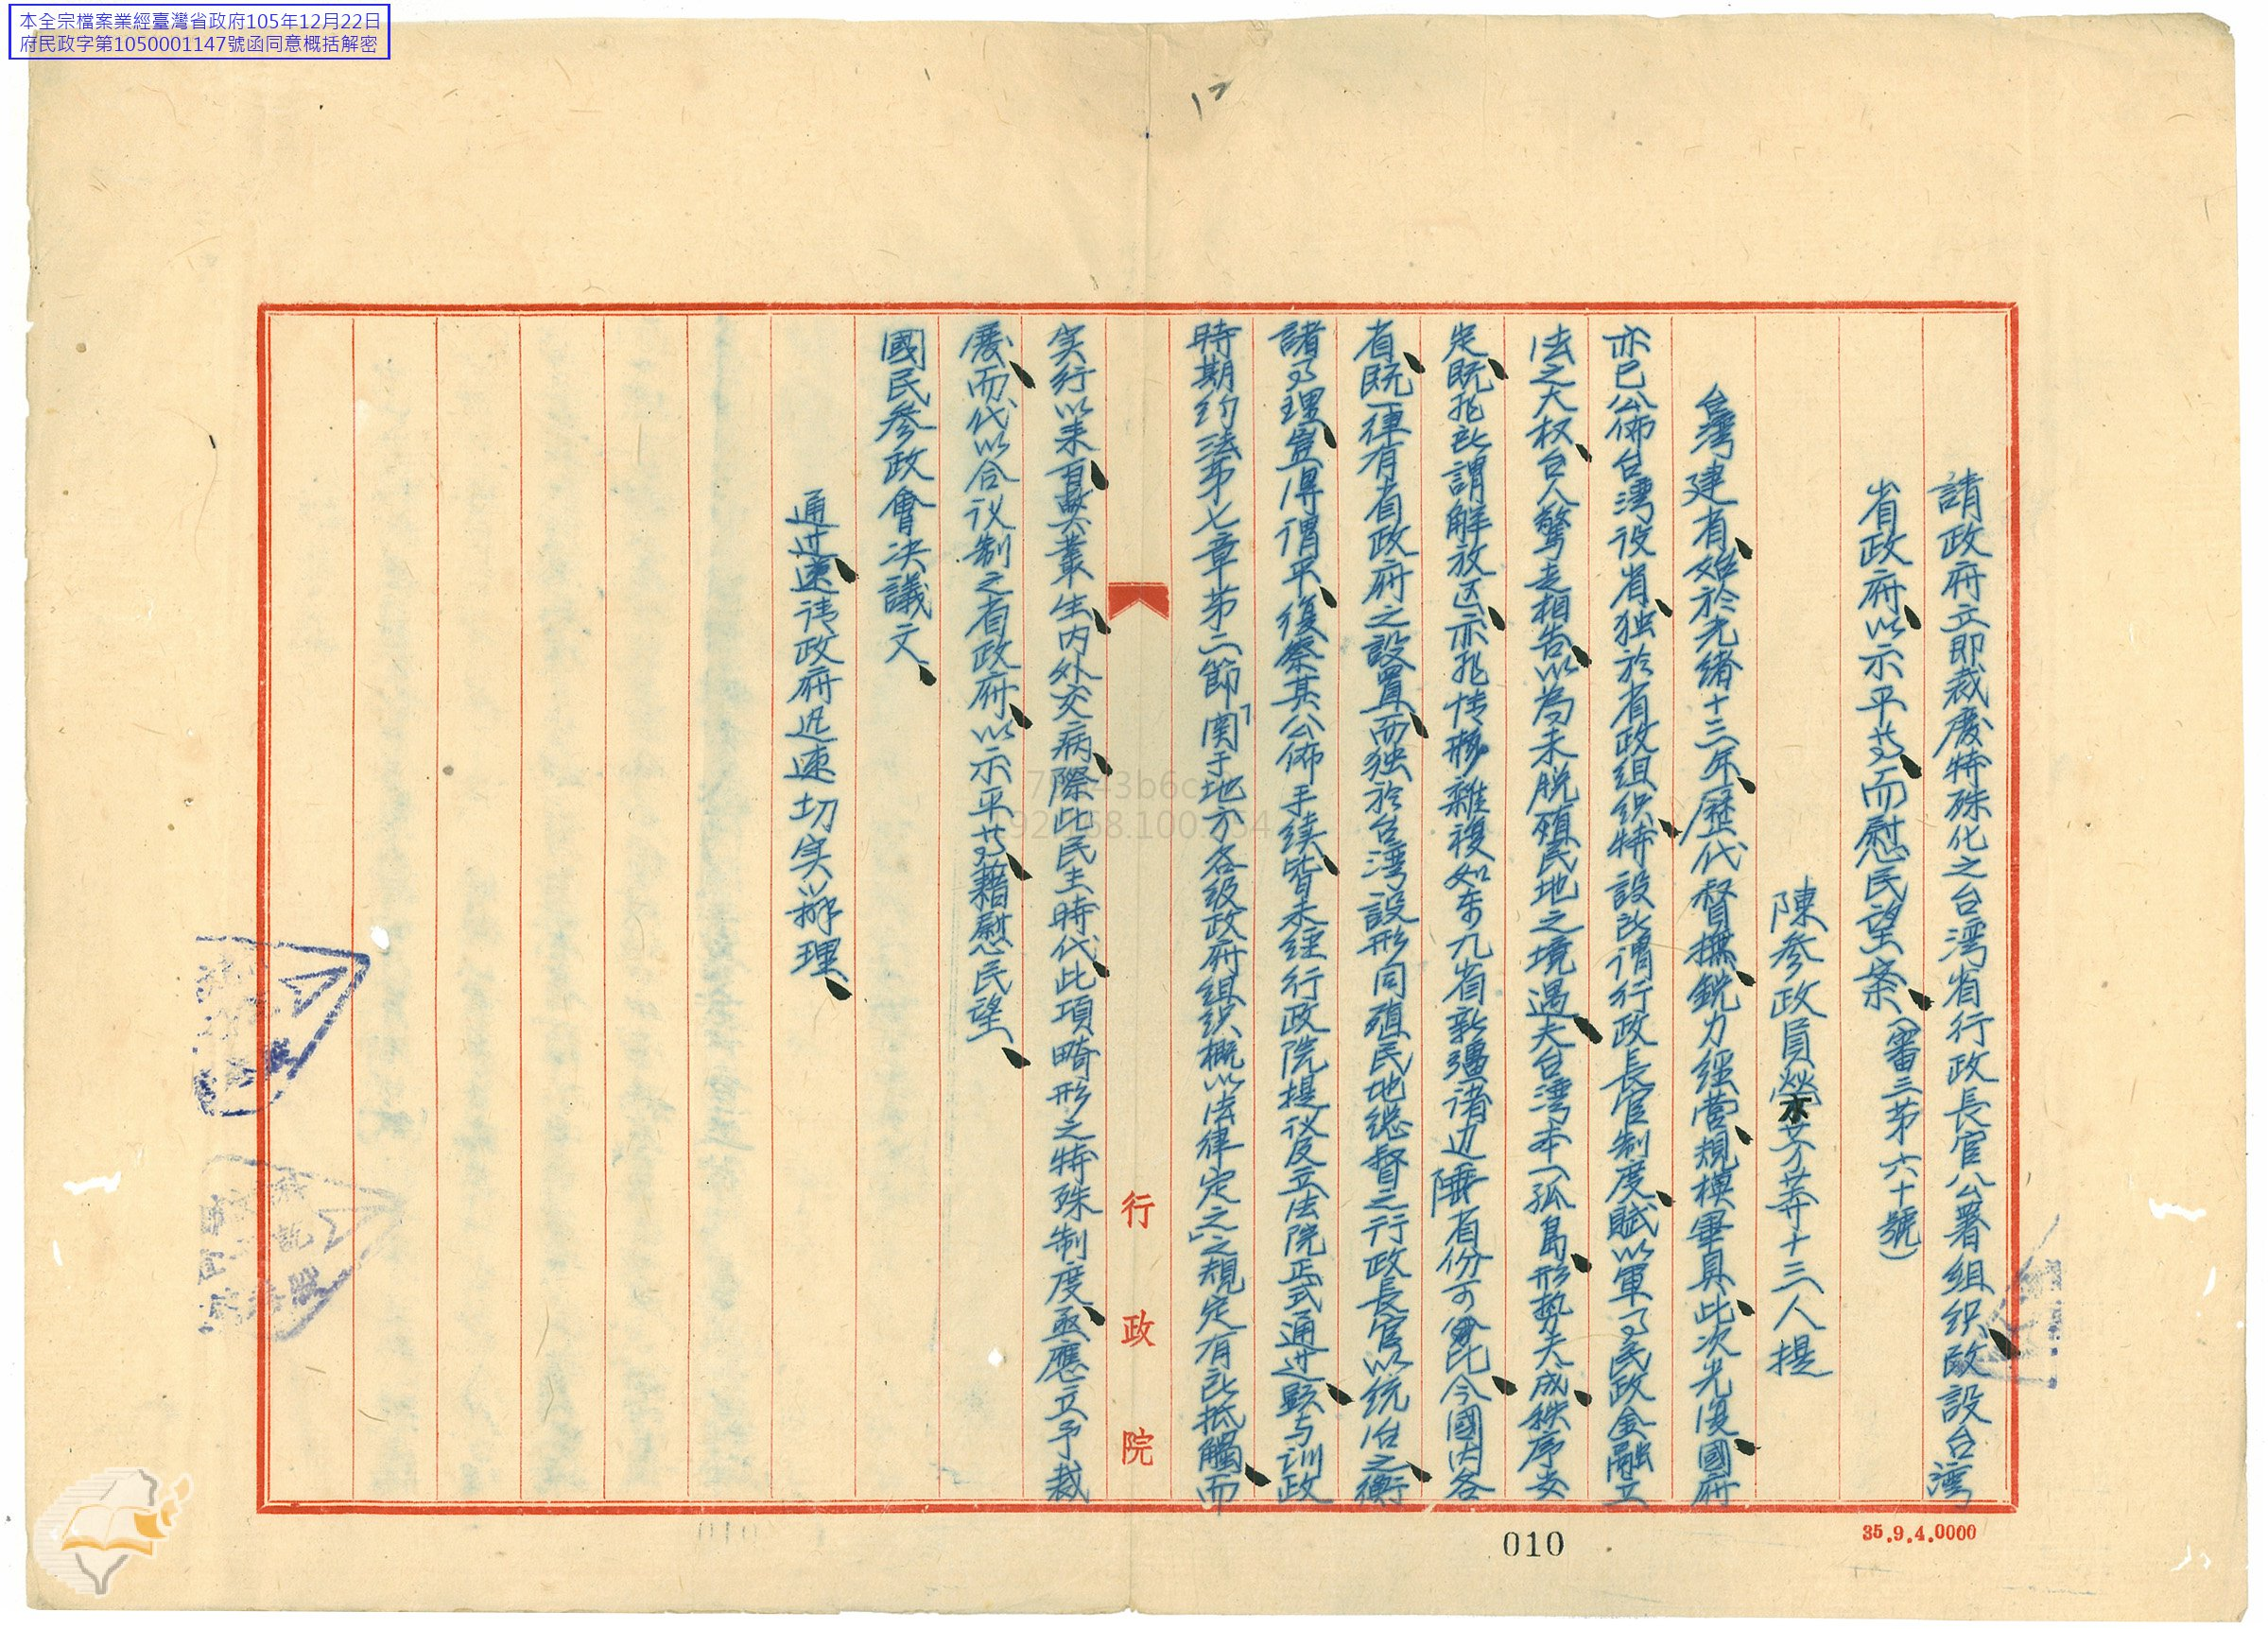 本全宗檔案業經臺灣省政府105年12月22日
府民政字第1050001147號函同意概括解密
請政府立即裁廢特殊化之台湾省行政長官公署组织改設台湾
省政府以示平等而慰民望案（審三第六十號）
陳參政員榮芳等十三人提
台灣建省始於光绪十三年歷代督撫銳力經营規模畢具此次光復國府
亦已公佈台湾设省独於省政组织特設所謂行政長官制度賦以軍事民政金融立
法之大权台人驚走相告以為未脱殖民地之境遇夫台湾本一孤島形势天成秩序安
定既非所謂解放区亦非情形雜複如东九省新疆诸边陲省份可比今國内各
省既一律有省政府之設置而独於台湾設形同殖民地總督之行政長官以统治之衡
諸事理豈得谓平復察其公佈手续皆未經行政院提议及立法院正式通过顯与训政
時期约法第七章第二節「関于地方各级政府组织概以法律定之」之規定有所抵觸而
实行以来百弊叢生内外交病際此民主時代此項畸形之特殊制度亟應立予裁
廢而代以合议制之省政府以示平等藉慰民望
國民參政會决議文
通过速请政府迅速切实辦理
行政院
010
35.9.4.0000